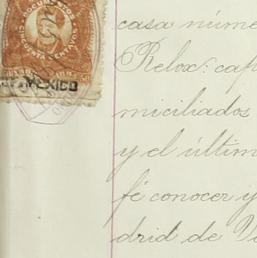 DOCUMENTOS
CINCUENTA CENTAVOS
MEXICO
casa núme
Relox: cap
miciliados
y el últim
fé conocer y
drid de Va